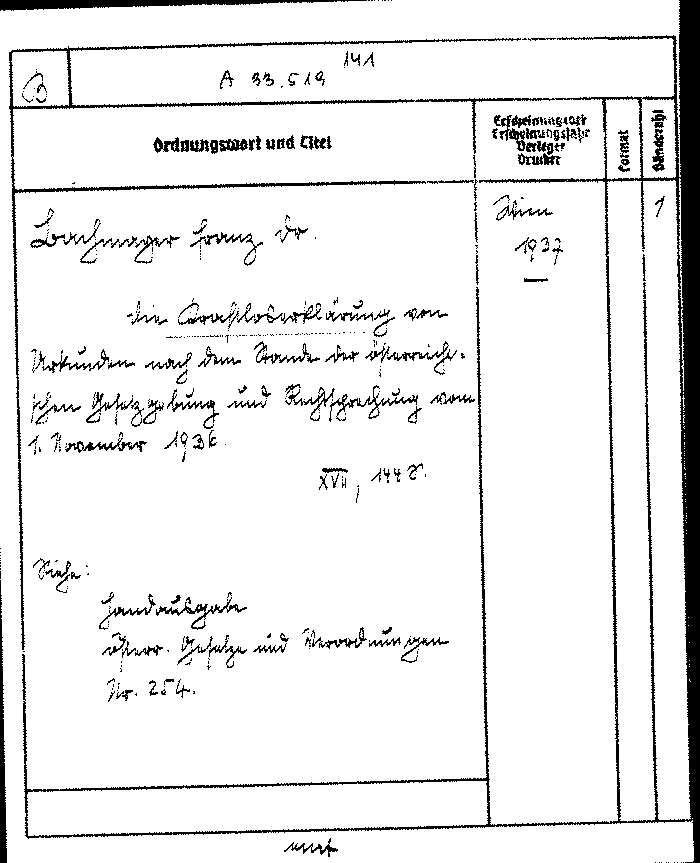 141
A 33.519
B
Ordnungswort und Titel
Erscheinungsort
Erscheinungsjahr
Verleger
Drucker
Format
Bändezahl
Bachmayer Franz Dr.
Wien
1937
1
Die Kraftloserklärung von
Urkunden nach dem Stande der österreichi-
schen Gesetzgebung und Rechtsprechung vom
1. November 1936.
XVII, 144 S.
Siehe:
Handausgabe
österr. Gesetze und Verordnungen
Nr. 254.